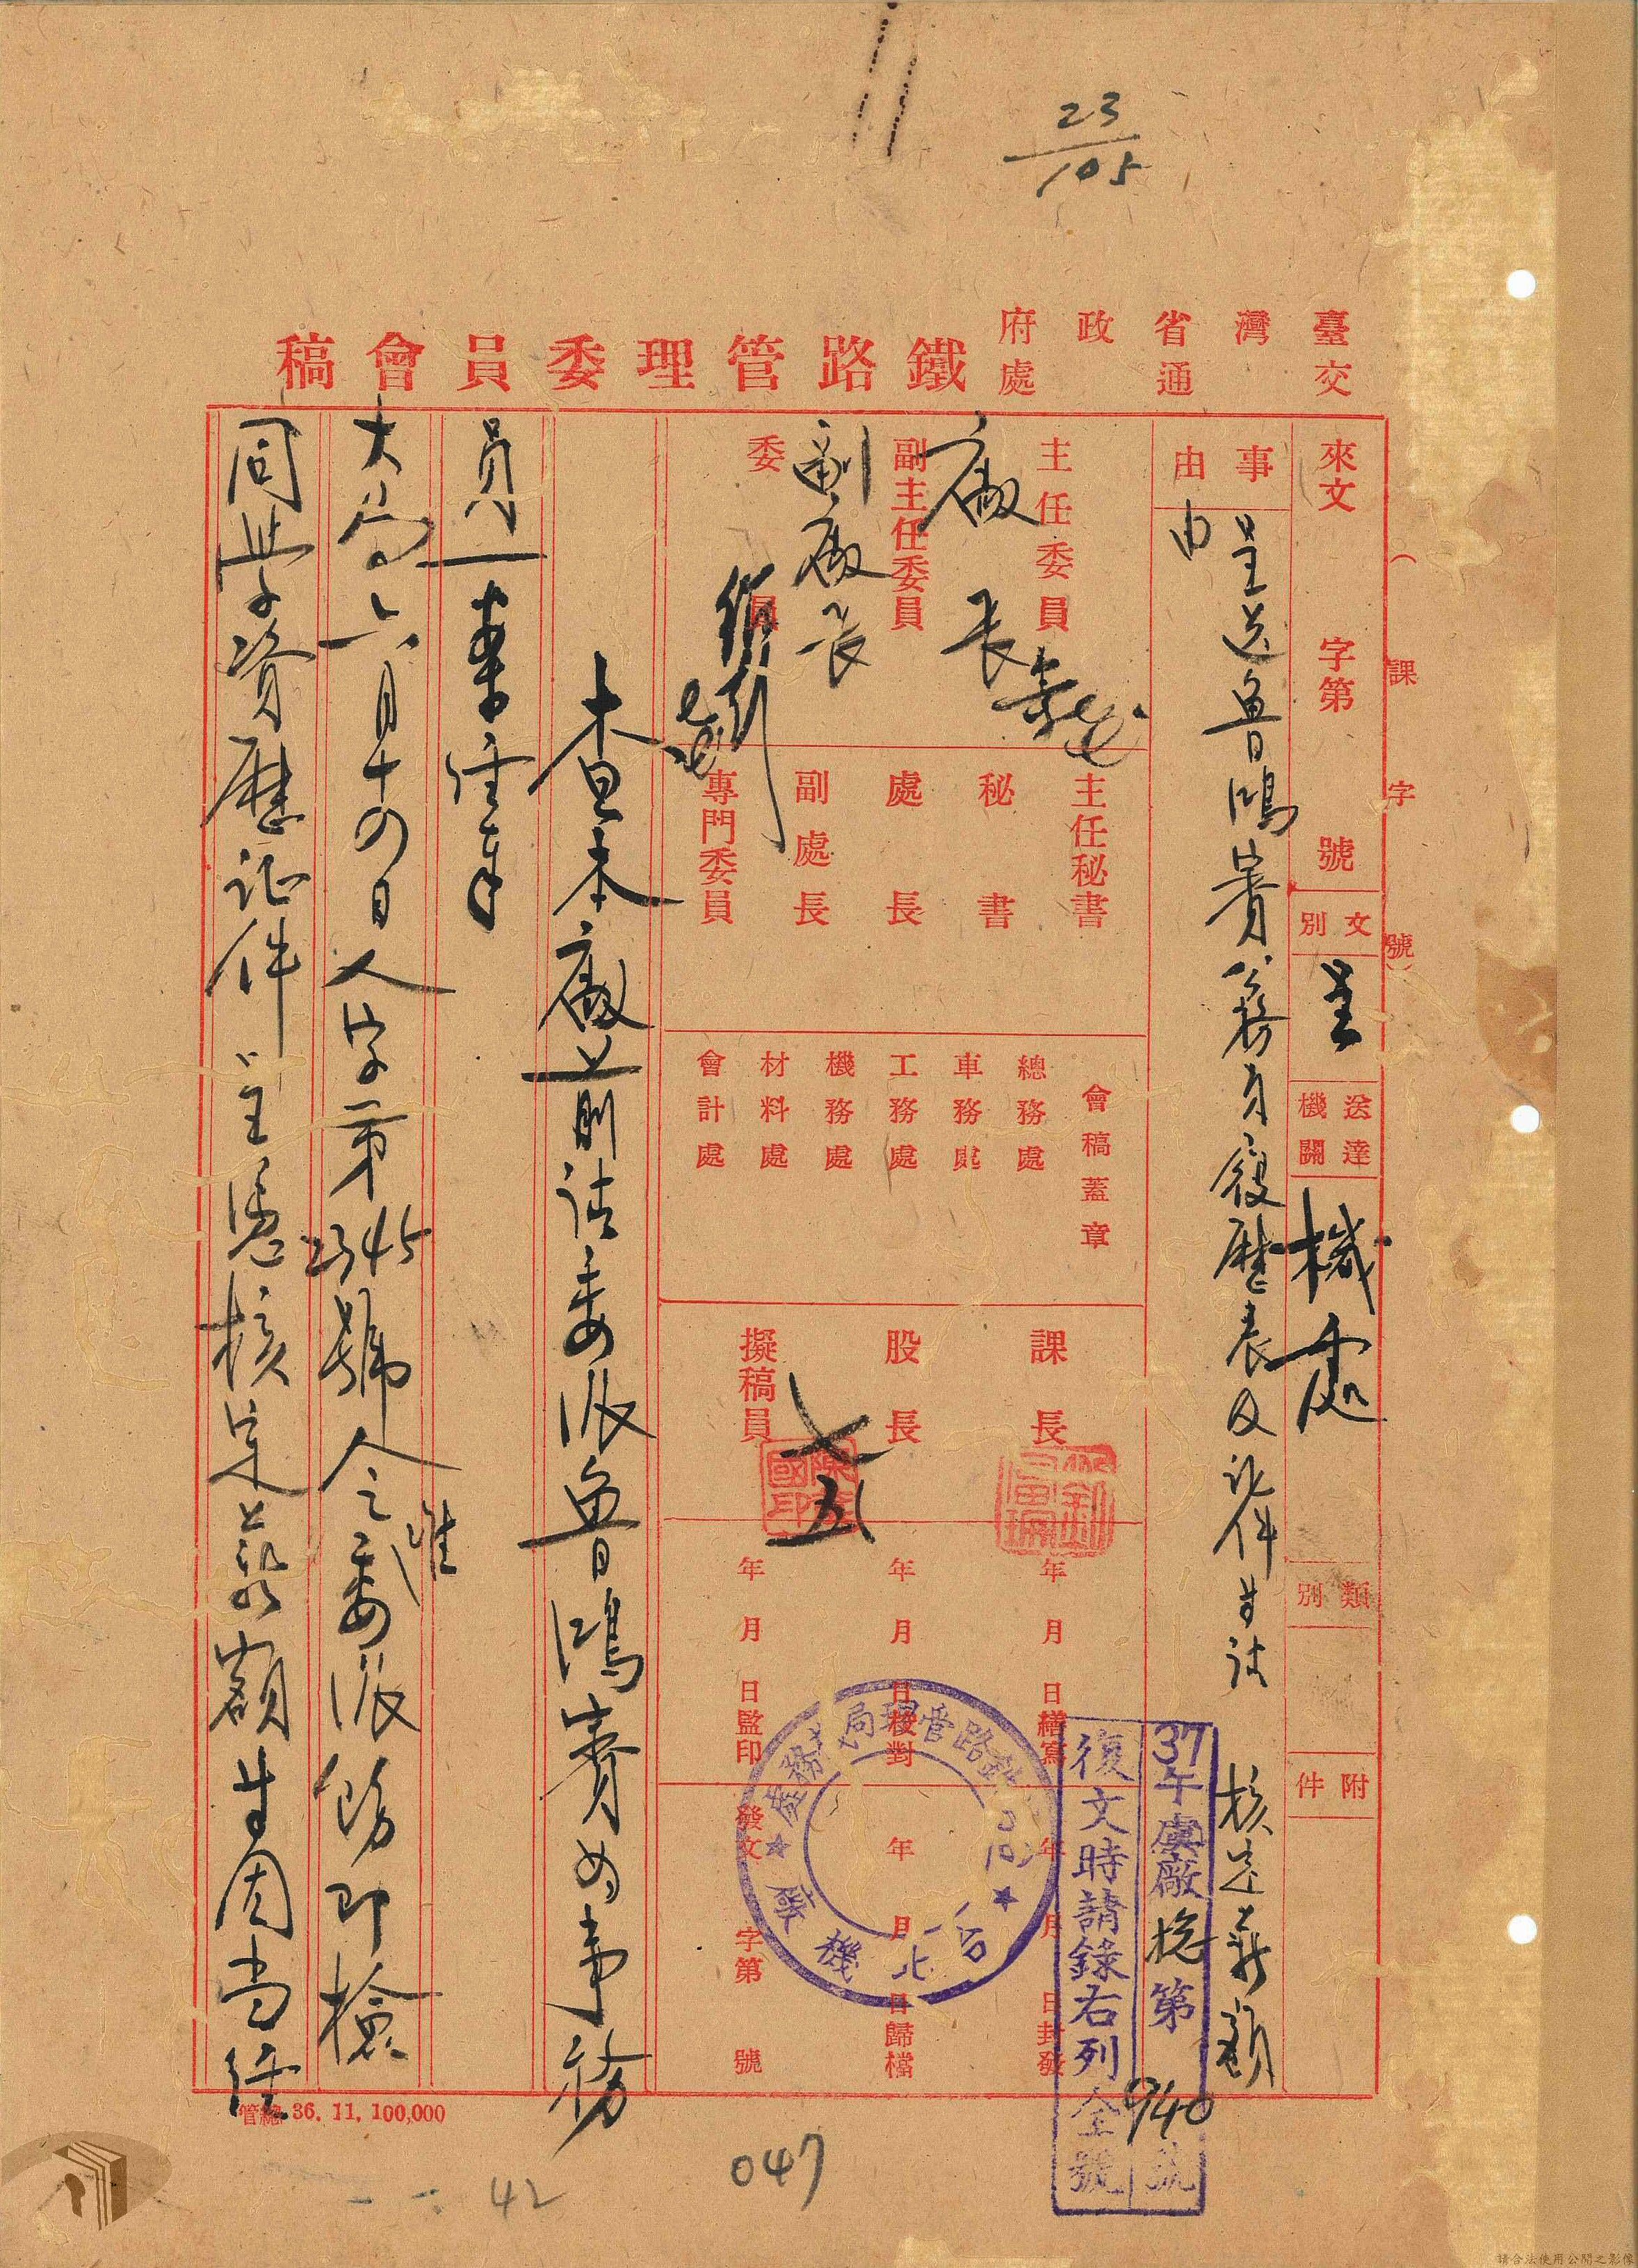 23
105
臺灣省政府
交通處
鐵路管理委員會稿
(課字號)
來文 字第 號
文別 呈
送達機關 機處
類別
附件
事由
呈送魯鴻賚籌員履歷表及証件生請
核定薪額
由
主任委員
廠長
副主任委員
副廠長
委員
主任秘書
秘書
處長
副處長
專門委員
會稿蓋章
總務處
車務處
工務處
機務處
材料處
會計處
課長
股長
擬稿員
七
五
年月日繕寫
年月日校對
年月日監印
年月日封發
年月日歸檔
發文字第號
37午虞廠 第940號
復文時請錄右列全號
查本廠前請委派魯鴻賚為事務
員一案經奉
大局六月十四日人字第2345號令准委派飭即檢
同學資歷証件呈憑核定薪額等因當經
管總 36. 11. 100,000
047
42
請合法使用公開之影像